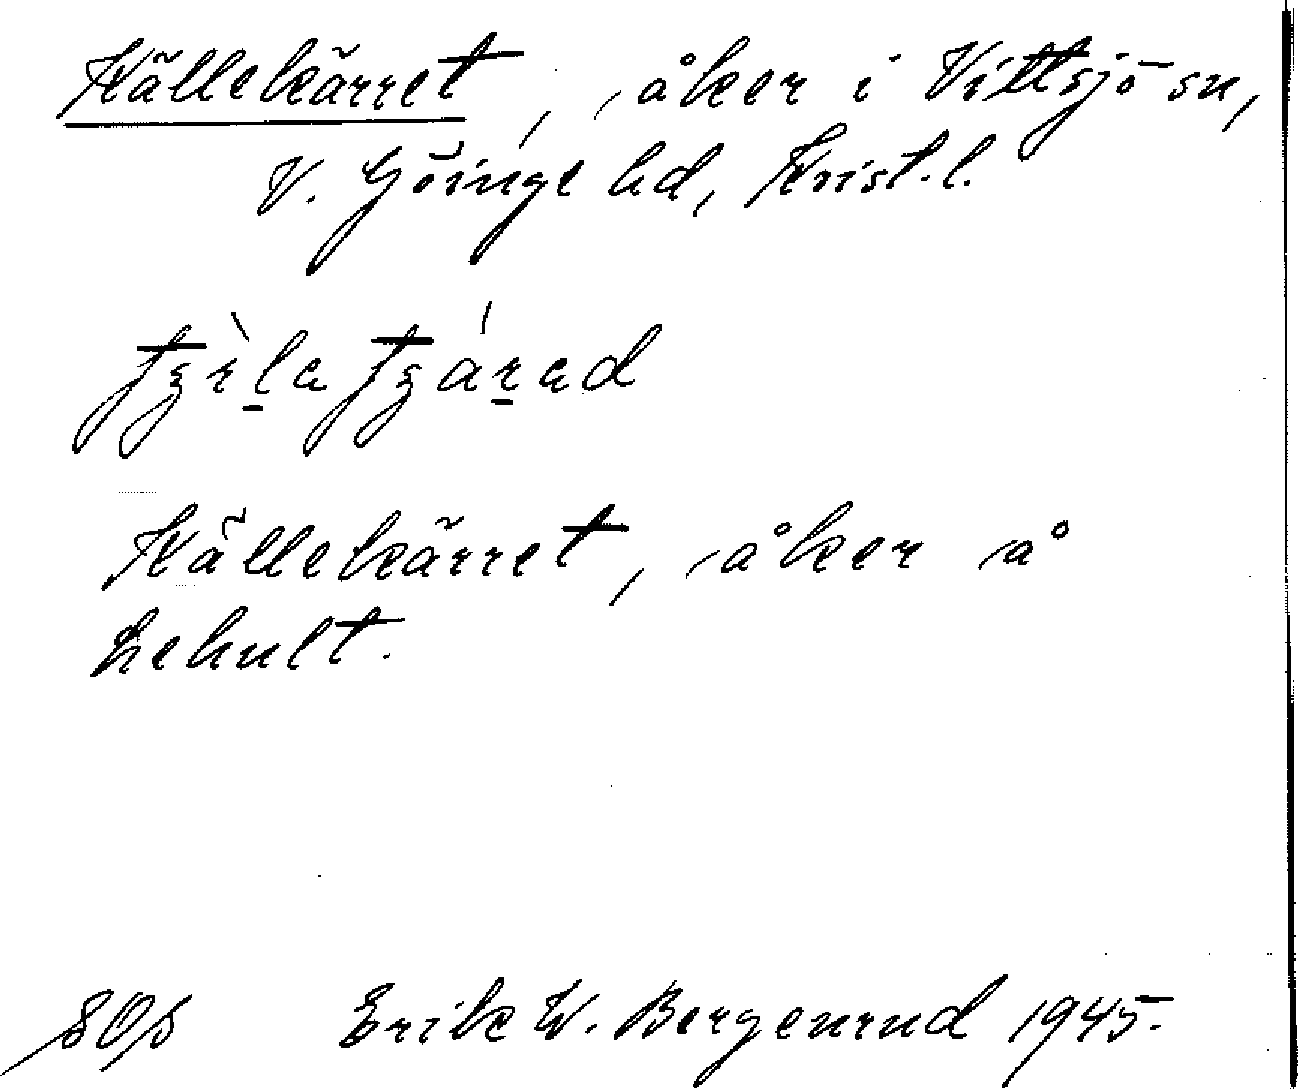 Källekärret, åker i Vittsjö sn,
V. Göinge hd, Krist. l.
Källekärret, åker å
Lehult.
Erik W. Bergenrud 1945.